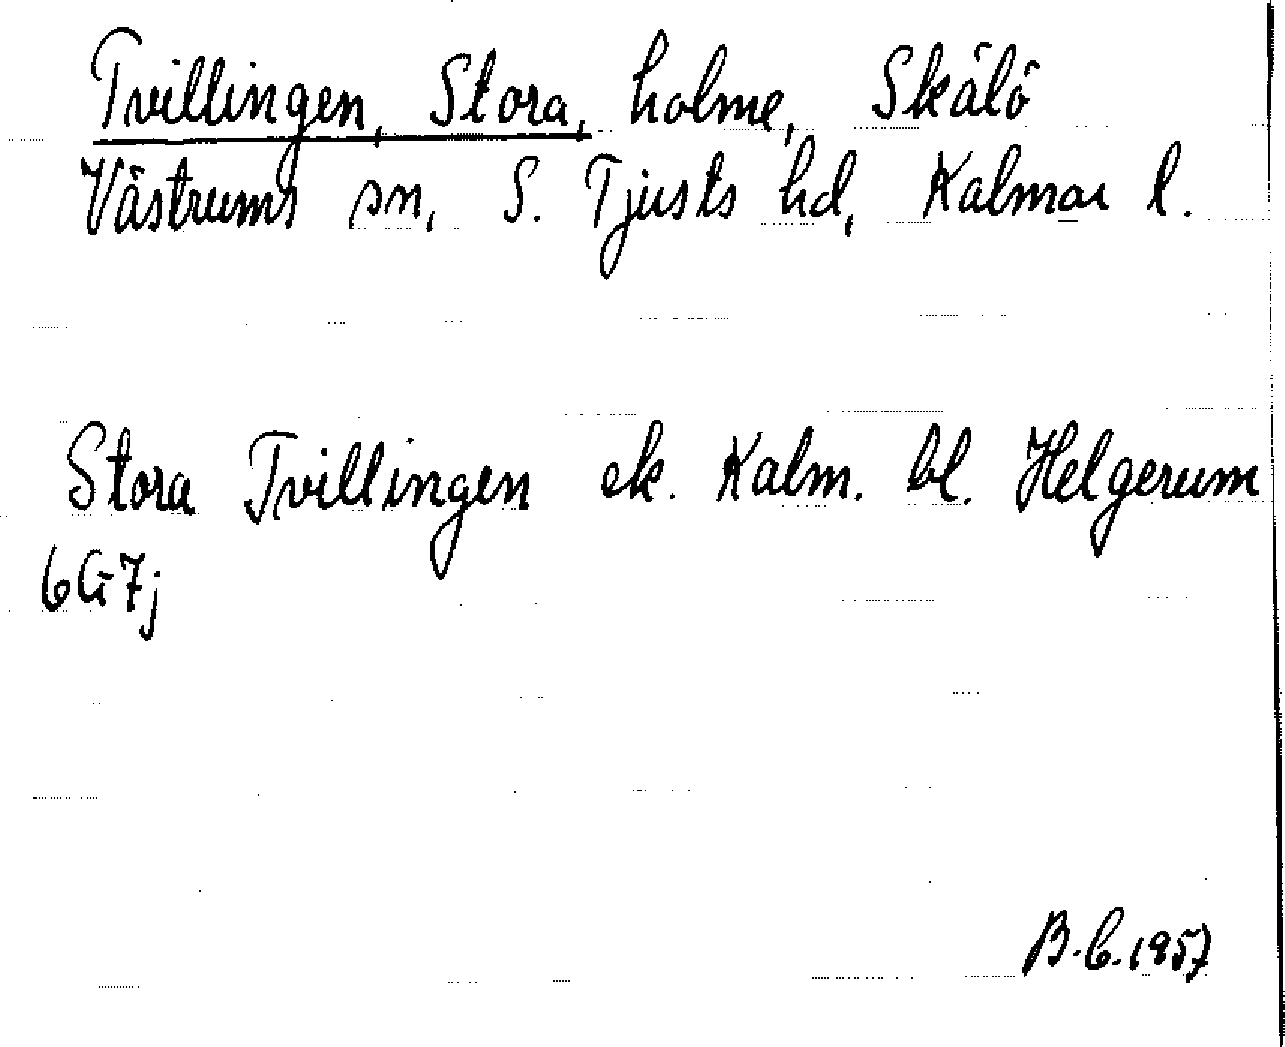 Tvillingen, Stora, holme, Skälö
Västrums sn, S. Tjusts hd, Kalmar l.
Stora Tvillingen ek. Kalm. bl. Helgerum
6G7j
B.C. 1957